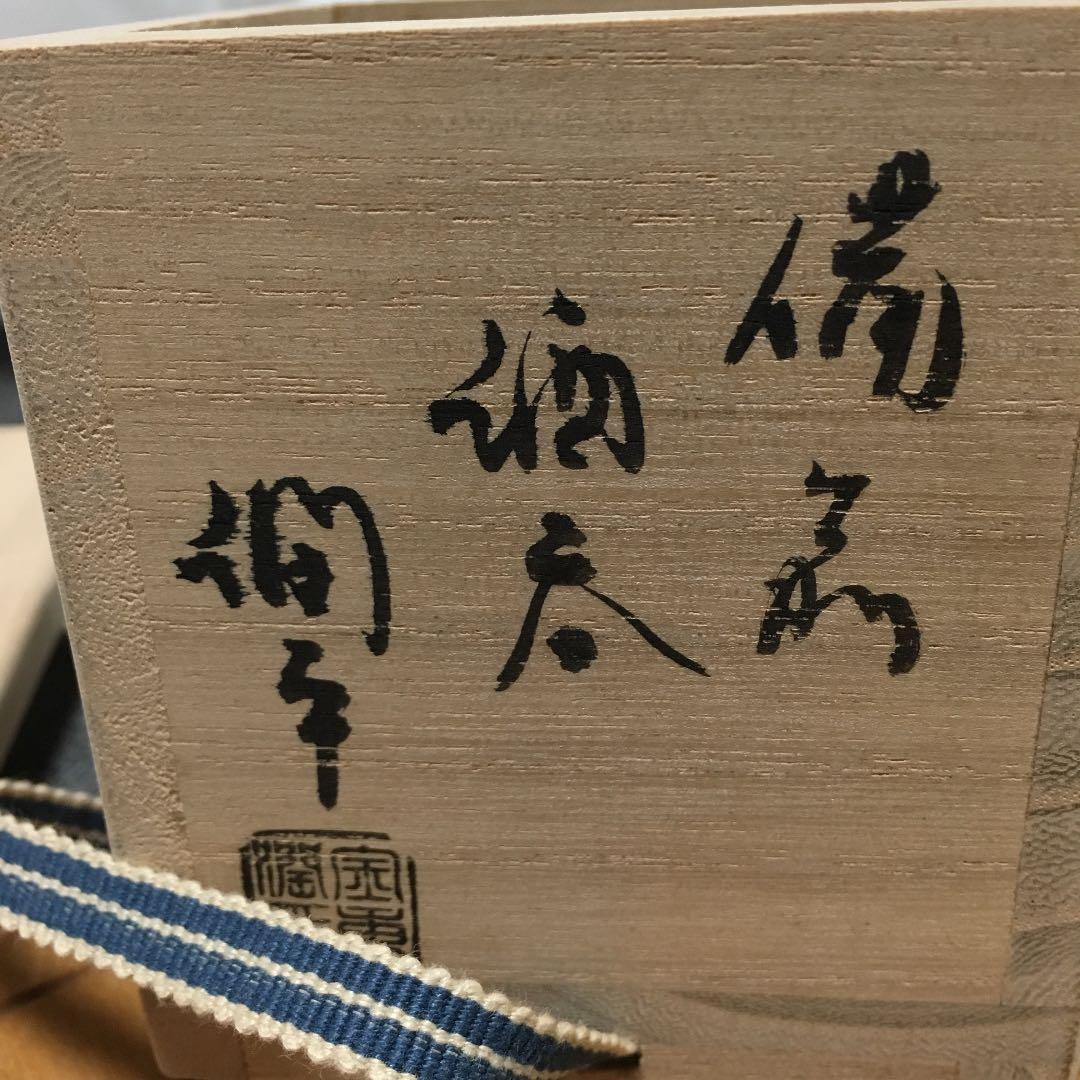 備前
酒呑
潤平